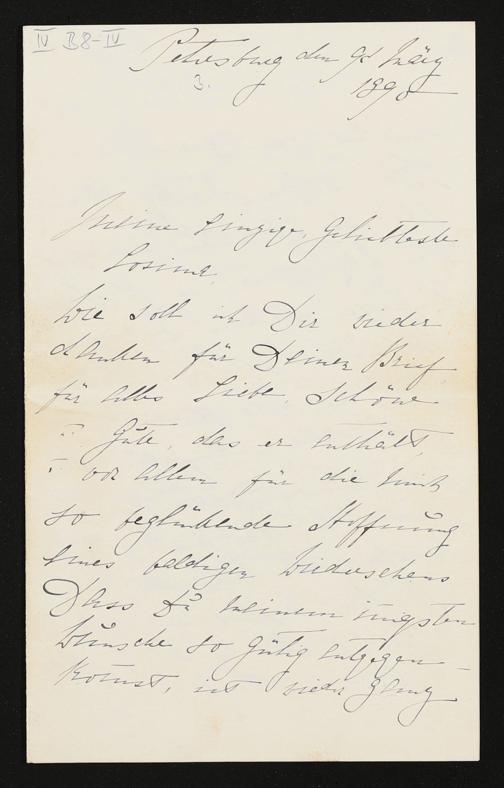 IV B8-IV
Petersburg den 9t März
3.
1898
Meine einzige, geliebteste
Cosima,
Wie soll ich Dir wieder
danken für Deinen Brief
für alles Liebe, Schöne
u Gute, das er enthält,
u vor allem für die mich
so beglückende Hoffnung
eines baldigen Wiedersehens
Dass Du meinem innigsten
Wunsche so gütig entgegen-
komst, ist wieder ganz